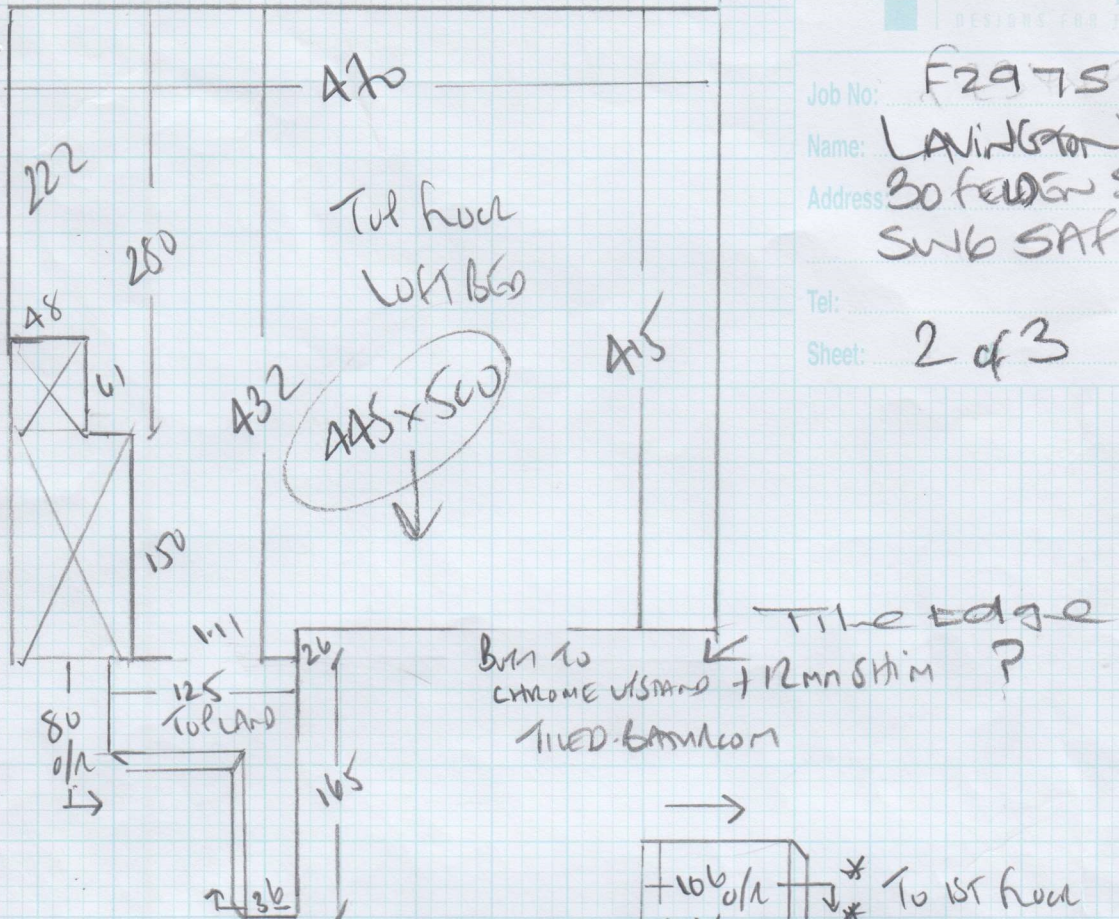 DESIGNS FOR
Job No: F2975
Name: LAVINGTON
Address: 30 FELDEN S
SW6 5AF
Tel:
Sheet: 2 of 3
470
222
280
Top floor
LOFT BED
48
61
432
445 x 500
415
150
1.11
26
Tile Edge
?
BUTT TO
CHROME + 12mm SHIM
TILED BATHROOM
125
TOP LAND
80
o/n
165
36
106 o/n
*
To 1ST floor
*